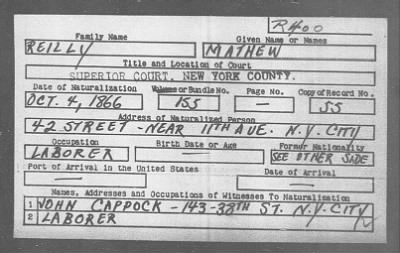 R400
Family Name Given Name or Names
REILLY MATHEW
Title and Location of Court
SUPERIOR COURT, NEW YORK COUNTY.
Date of Naturalization Volume or Bundle No. Page No. Copy of Record No.
OCT. 4, 1866 155 — 55
Address of Naturalized Person
42 STREET - NEAR 11TH AVE. N.Y. CITY
Occupation Birth Date or Age Former Nationality
LABORER — SEE OTHER SIDE
Port of Arrival in the United States Date of Arrival
— —
Names, Addresses and Occupations of Witnesses To Naturalization
1 JOHN CAPPOCK - 143-38TH ST. N.Y. CITY
2 LABORER